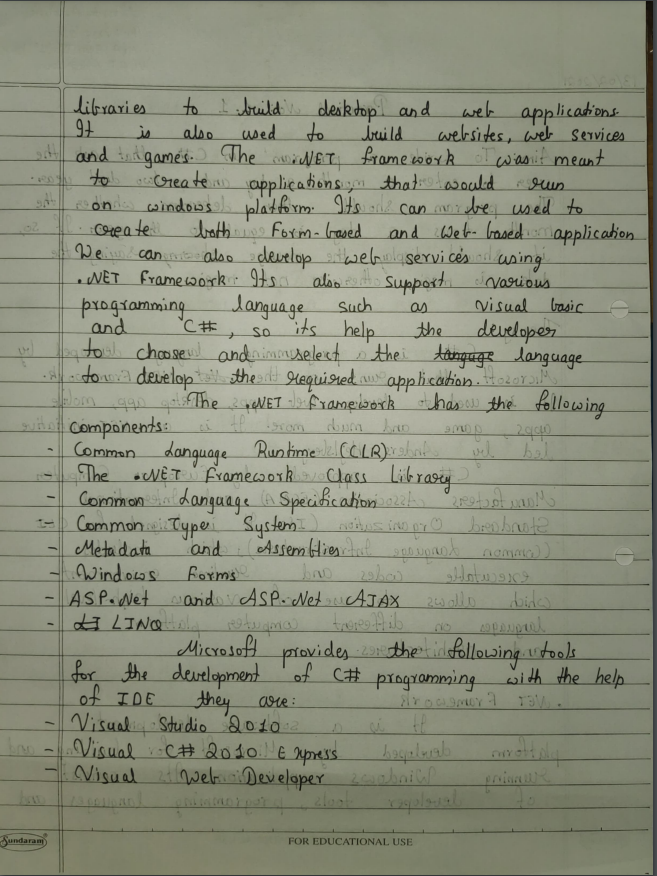 libraries to build desktop and web applications.
It is also used to build websites, web services
and games. The .NET framework was meant
to create applications, that would run
on windows platform. Its can be used to
create both Form-based and Web-based application
We can also develop web services using
.NET Framework. Its also support various
programming language such as Visual basic
and C#, so its help the developer
to choose and select the language
to develop the required application.
The .NET Framework has the following
components:
- Common Language Runtime (CLR)
- The .NET Framework Class Library
- Common Language Specification
- Common Type System
- Metadata and Assemblies
- Windows Forms
- ASP.Net and ASP.Net AJAX
- LINQ
Microsoft provides the following tools
for the development of C# programming with the help
of IDE they are:
- Visual Studio 2010
- Visual C# 2010 Express
- Visual Web Developer
Sundaram
FOR EDUCATIONAL USE